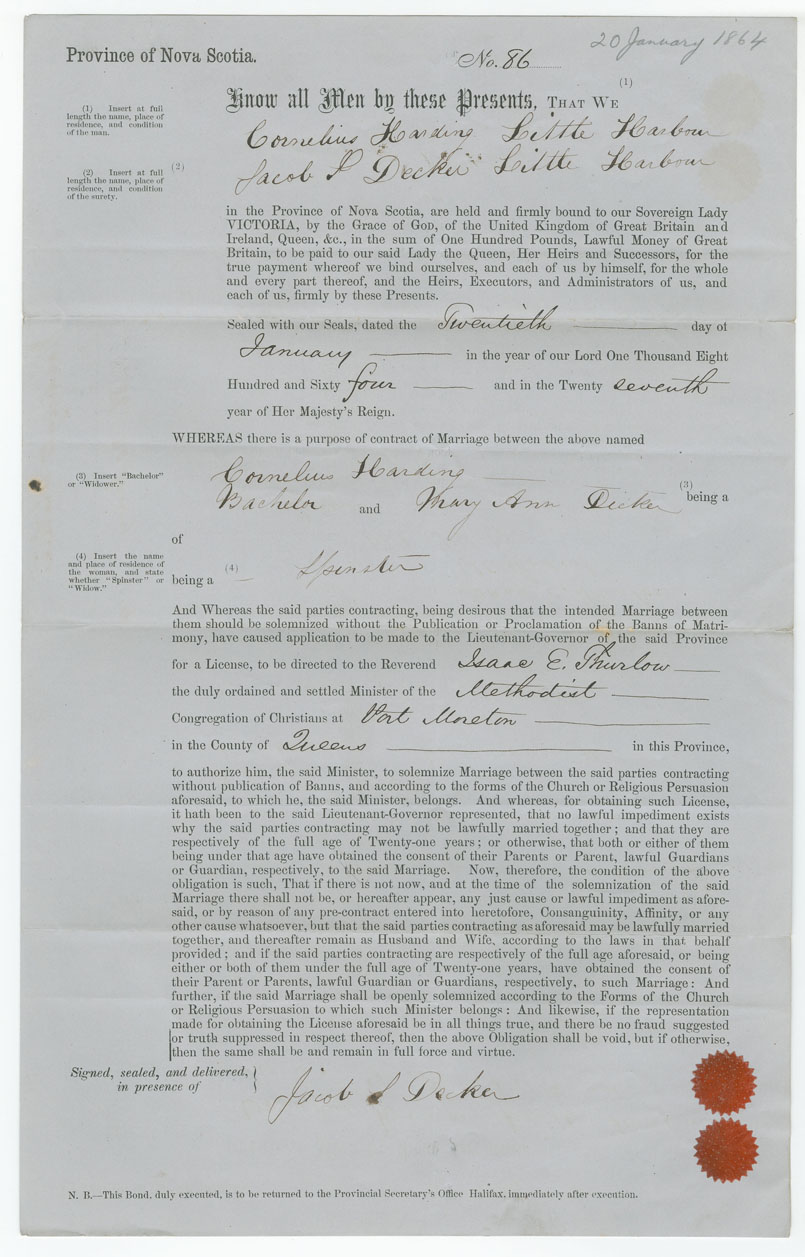 20 January 1864
Province of Nova Scotia.
No. 86
Know all Men by these Presents, THAT WE (1)
(1) Insert at full
length the name, place of
residence, and condition
of the man.
Cornelius Harding Little Harbour
(2) Insert at full
length the name, place of
residence, and condition
of the surety.
(2)
Jacob S Decker Little Harbour
in the Province of Nova Scotia, are held and firmly bound to our Sovereign Lady
VICTORIA, by the Grace of GOD, of the United Kingdom of Great Britain and
Ireland, Queen, &c., in the sum of One Hundred Pounds, Lawful Money of Great
Britain, to be paid to our said Lady the Queen, Her Heirs and Successors, for the
true payment whereof we bind ourselves, and each of us by himself, for the whole
and every part thereof, and the Heirs, Executors, and Administrators of us, and
each of us, firmly by these Presents.
Sealed with our Seals, dated the Twentieth day of
January in the year of our Lord One Thousand Eight
Hundred and Sixty four and in the Twenty seventh
year of Her Majesty's Reign.
WHEREAS there is a purpose of contract of Marriage between the above named
(3) Insert "Bachelor"
or "Widower."
Cornelius Harding
(3) being a
Bachelor and Mary Ann Decker
of
(4) Insert the name
and place of residence of
the woman, and state
whether "Spinster" or
"Widow."
being a (4) Spinster
And Whereas the said parties contracting, being desirous that the intended Marriage between
them should be solemnized without the Publication or Proclamation of the Banns of Matri-
mony, have caused application to be made to the Lieutenant-Governor of the said Province
for a License, to be directed to the Reverend Isaac E. Thurlow
the duly ordained and settled Minister of the Methodist
Congregation of Christians at Port Moreton
in the County of Queens in this Province,
to authorize him, the said Minister, to solemnize Marriage between the said parties contracting
without publication of Banns, and according to the forms of the Church or Religious Persuasion
aforesaid, to which he, the said Minister, belongs. And whereas, for obtaining such License,
it hath been to the said Lieutenant-Governor represented, that no lawful impediment exists
why the said parties contracting may not be lawfully married together; and that they are
respectively of the full age of Twenty-one years; or otherwise, that both or either of them
being under that age have obtained the consent of their Parents or Parent, lawful Guardians
or Guardian, respectively, to the said Marriage. Now, therefore, the condition of the above
obligation is such, That if there is not now, and at the time of the solemnization of the said
Marriage there shall not be, or hereafter appear, any just cause or lawful impediment as afore-
said, or by reason of any pre-contract entered into heretofore, Consanguinity, Affinity, or any
other cause whatsoever, but that the said parties contracting as aforesaid may be lawfully married
together, and thereafter remain as Husband and Wife, according to the laws in that behalf
provided; and if the said parties contracting are respectively of the full age aforesaid, or being
either or both of them under the full age of Twenty-one years, have obtained the consent of
their Parent or Parents, lawful Guardian or Guardians, respectively, to such Marriage: And
further, if the said Marriage shall be openly solemnized according to the Forms of the Church
or Religious Persuasion to which such Minister belongs: And likewise, if the representation
made for obtaining the License aforesaid be in all things true, and there be no fraud suggested
or truth suppressed in respect thereof, then the above Obligation shall be void, but if otherwise,
then the same shall be and remain in full force and virtue.
Signed, sealed, and delivered,
in presence of
Jacob S Decker
N. B.—This Bond, duly executed, is to be returned to the Provincial Secretary's Office Halifax, immediately after execution.